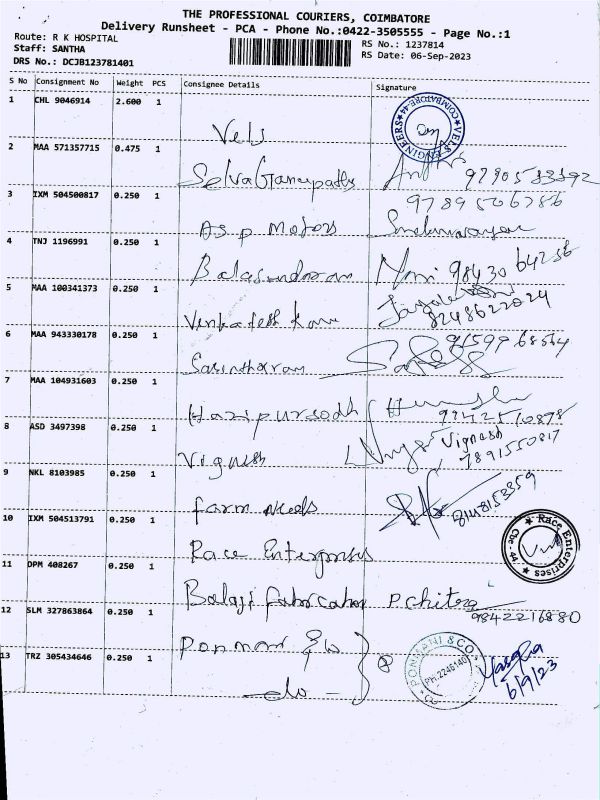 THE PROFESSIONAL COURIERS, COIMBATORE
Delivery Runsheet - PCA - Phone No.:0422-3505555 - Page No.:1
Route: R K HOSPITAL
Staff: SANTHA
DRS No.: DCJB123781401
RS No.: 1237814
RS Date: 06-Sep-2023
S No Consignment No Weight PCS Consignee Details Signature
1 CHL 9046914 2.600 1 Vels
VELS ENGINEERS COIMBATORE-44
2 MAA 571357715 0.475 1 Selva Ganapathy
3 IXM 504500817 0.250 1 As p Motors 9789506786
4 TNJ 1196991 0.250 1 Balasundaram Mani 98430 64256
5 MAA 100341373 0.250 1 Venkatesh Kani 8248622024
6 MAA 943330178 0.250 1
7 MAA 104931603 0.250 1
8 ASD 3497398 0.250 1 Vignesh Vignesh 7891550817
9 NKL 8103985 0.250 1 farm needs
10 IXM 504513791 0.250 1 Race Enterprises
Race Enterprises Cbe - 44
11 DPM 408267 0.250 1 Balaji fabricator P chitra 9842216880
12 SLM 327863864 0.250 1 Ponmani & co
PONMANI & CO. Ph:2246140
13 TRZ 305434646 0.250 1 - do - 6/9/23